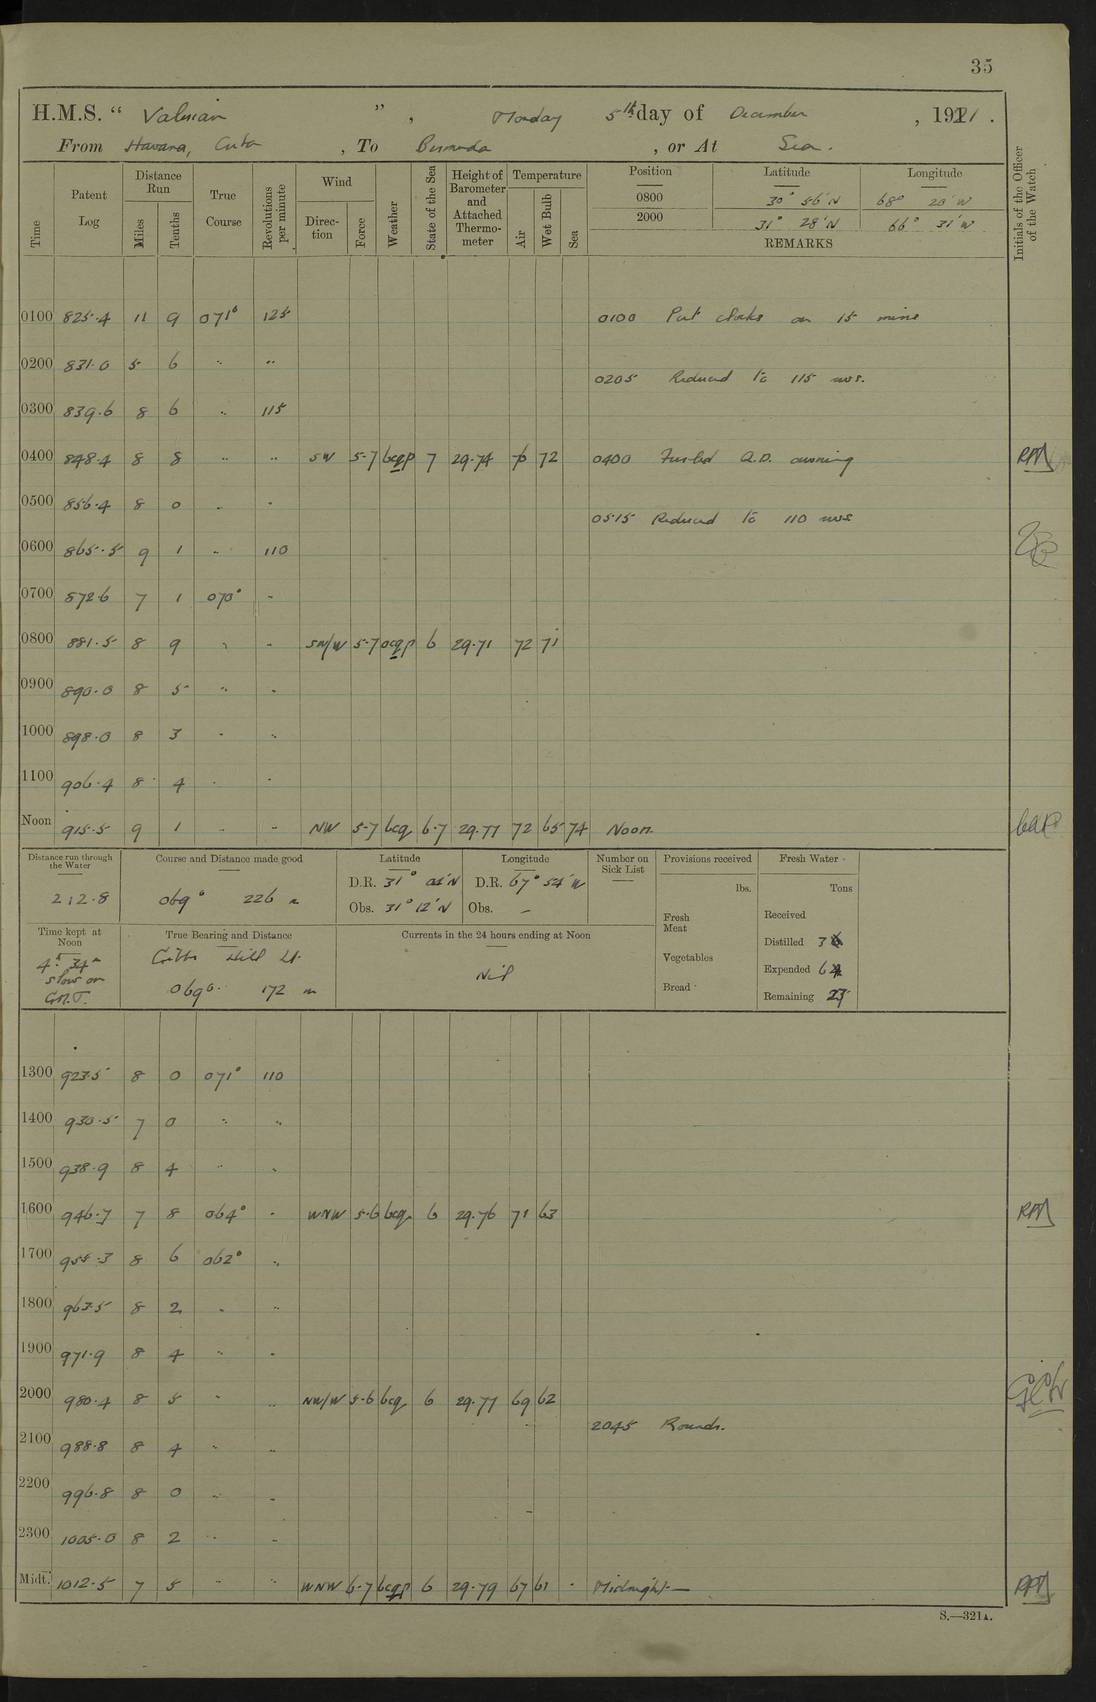 35
H.M.S. “ Valerian ” , Monday 5th day of December , 1921 .
From Havana, Cuba , To Bermuda , or At Sea .
Time Patent Log Distance Run Miles Tenths True Course Revolutions per minute Wind Direction Force Weather State of the Sea Height of Barometer and Attached Thermometer Temperature Air Wet Bulb Sea Position Latitude Longitude Initials of the Officer of the Watch
0800 30° 56' N 68° 20' W
2000 31° 28' N 66° 31' W
REMARKS
0100 825.4 11 9 071° 125 0100 Put clocks on 15 mins
0200 831.0 5 6 " "
0205 Reduced to 115 revs.
0300 839.6 8 6 " 115
0400 848.4 8 8 " " SW 5-7 bcqp 7 29.74 72 0400 A.D. RM
0500 856.4 8 0 " "
0515 Reduced to 110 revs
0600 865.5 9 1 " 110
0700 872.6 7 1 070° "
0800 881.5 8 9 " " SW/W 5-7 ocqp 6 29.71 72 71
0900 890.0 8 5 " "
1000 898.0 8 3 " "
1100 906.4 8 4 " "
Noon 915.5 9 1 " " NW 5-7 bcq 6-7 29.77 72 65 74 Noon.
Distance run through the Water Course and Distance made good Latitude Longitude Number on Sick List Provisions received Fresh Water
212.8 069° 226 m D.R. 31° 04' N D.R. 67° 54' W lbs. Tons
Obs. 31° 12' N Obs. –
Fresh Meat Received
Time kept at Noon True Bearing and Distance Currents in the 24 hours ending at Noon Distilled 36
4h 34m slow on G.M.T. Gibbs Hill Lt. Nil Vegetables Expended 64
069° 172 m Bread Remaining 23
1300 923.5 8 0 071° 110
1400 930.5 7 0 " "
1500 938.9 8 4 " "
1600 946.7 7 8 064° " WNW 5-6 bcq 6 29.76 71 63 RM
1700 955.3 8 6 062° "
1800 963.5 8 2 " "
1900 971.9 8 4 " "
2000 980.4 8 5 " " NW/W 5-6 bcq 6 29.77 69 62
2045 Rounds.
2100 988.8 8 4 " "
2200 996.8 8 0 " "
2300 1005.0 8 2 " "
Midt. 1012.5 7 5 " " WNW 6-7 bcqp 6 29.79 67 61 Midnight— RM
S.—321A.